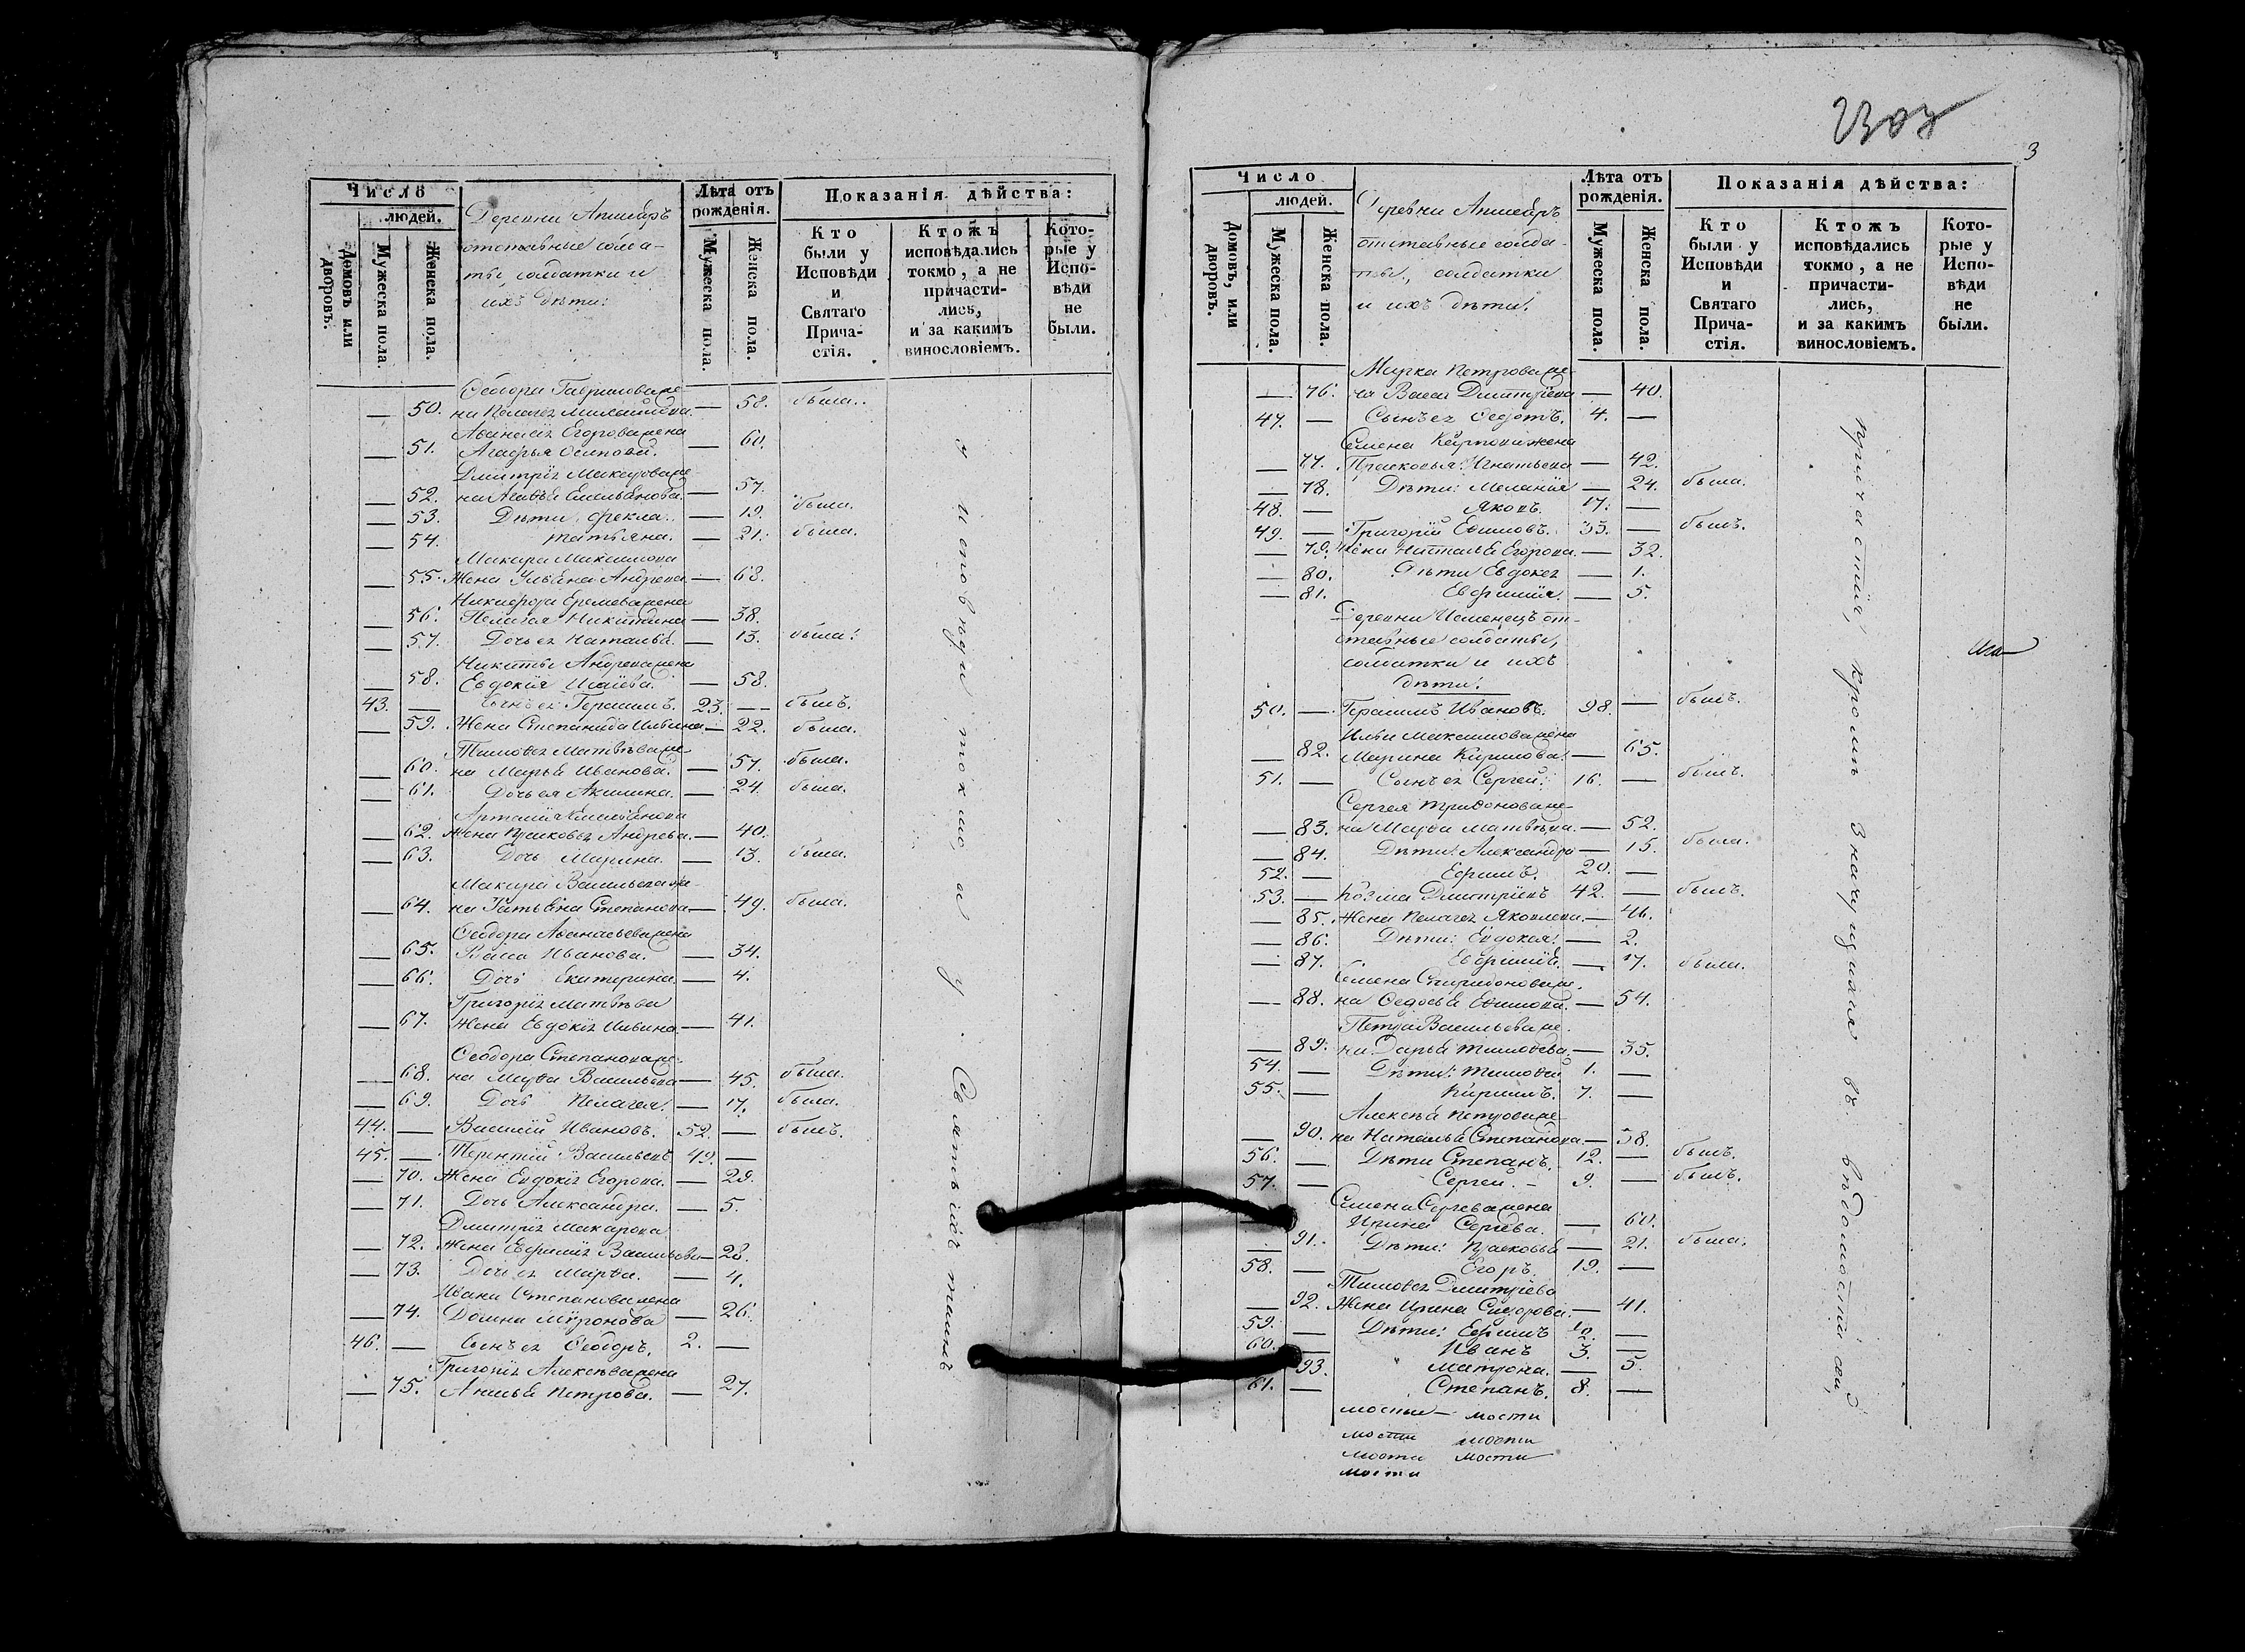 Число
людей.
Домовъ или дворовъ.
Мужеска пола.
Женска пола.
Деревни Апшебръ
отставные солда-
ты, солдатки и
ихъ дѣти:
Лѣта отъ
рожденія.
Мужеска пола.
Женска пола.
Показанія дѣйства:
Кто
были у
Исповѣди
и
Святаго
Прича-
стія.
Ктожъ
исповѣдались
токмо, а не
причасти-
лись,
и за какимъ
винословіемъ.
Кото-
рые у
Испо-
вѣди
не
были.
Ѳеодора Гаврилова же-
— 50. на Пелагея — 58. была.
Аѳанасія Егорова жена
— 51. Агафья Осипова. — 60.
Дмитрія Макарова же-
— 52. на Агаѳья Емельянова. — 57.
— 53. Дѣти: Фекла. — 19. была.
— 54. Татьяна. — 21. была.
Макара Максимова
— 55. Жена Ульяна Андреева — 68.
Никифора Еремева жена
— 56. Пелагея Никитина — 38.
— 57. Дочь ея Наталья. — 13. была.
Никиты Андреева жена
— 58. Евдокія Исаева. — 58.
43. — Сынъ ея Герасимъ. 23. — былъ.
— 59. Жена Степанида Ильина — 22. была.
Тимоѳея Матвѣева же-
— 60. на Марья Иванова. — 57. была.
— 61. Дочь ея Акилина. — 24. была.
Артамія Емельянова
— 62. Жена Прасковья Андреева. — 40.
— 63. Дочь Марина. — 13. была.
Макара Васильева же-
— 64. на Татьяна Степанова — 49. была.
Ѳеодора Аѳанасьева жена
— 65. Васса Иванова. — 34.
— 66. Дочь Екатерина. — 4.
Григорія Матвѣева
— 67. Жена Евдокія Ильина. — 41.
Ѳеодора Степанова же-
— 68. на Марѳа Васильева — 45. была.
— 69. Дочь Пелагея. — 17. была.
44. — Василій Ивановъ. 52. — былъ.
45. — Терентій Васильевъ 49. —
— 70. Жена Евдокія Егорова. — 29.
— 71. Дочь Александра. — 5.
Дмитрія Макарова
— 72. Жена Евфимія Васильева — 28.
— 73. Дочь ея Марѳа. — 4.
Ивана Степанова жена
— 74. Домна Миронова — 26.
46. — Сынъ ея Ѳеодоръ. 2. —
Григорія Алексѣева жена
— 75. Анисья Петрова. — 27.
исповѣди токмо, а у Святыхъ таинъ
3
Число
людей.
Домовъ, или дворовъ.
Мужеска пола.
Женска пола.
Деревни Апшебръ
отставные солда-
ты, солдатки
и ихъ дѣти:
Лѣта отъ
рожденія.
Мужеска пола.
Женска пола.
Показанія дѣйства:
Кто
были у
Исповѣди
и
Святаго
Прича-
стія.
Ктожъ
исповѣдались
токмо, а не
причасти-
лись,
и за какимъ
винословіемъ.
Кото-
рые у
Испо-
вѣди
не
были.
Марка Петрова же-
— 76. на Васса Дмитріева — 40.
47. — Сынъ ея Ѳедотъ. 4. —
Семена Карпова жена
— 77. Прасковья Игнатьева — 42.
— 78. Дѣти: Меланія — 24. была.
48. — Яковъ. 17. —
49. — Григорій Ефимовъ. 35. — былъ.
— 79. Жена Наталья Егорова. — 32.
— 80. Дѣти Евдокея — 1.
— 81. Евфимія. — 5.
Деревни Исменецъ от-
ставные солдаты,
солдатки и ихъ
дѣти:
50. — Герасимъ Ивановъ. 98. — былъ.
Ильи Максимова жена
— 82. Марина Кирилова. — 65.
51. — Сынъ ея Сергей. 16. — былъ.
Сергея Триѳонова же-
— 83. на Марѳа Матвѣева. — 52.
— 84. Дѣти: Александра — 15. была.
52. — Ефимъ. 20. —
53. — Козма Дмитріевъ 42. — былъ.
— 85. Жена Пелагея Яковлева. — 46.
— 86. Дѣти: Евдокея. — 2.
— 87. Евфимія. — 17. была.
Семена Спиридонова же-
— 88. на Ѳедосья Ефимова. — 54.
Петра Васильева же-
— 89. на Дарья Тимоѳева. — 35.
54. — Дѣти: Тимоѳей 1. —
55. — Кирилъ. 7. —
Алексѣя Петрова же-
— 90. на Наталья Степанова — 38.
56. — Дѣти Степанъ. 12. — былъ.
57. — Сергей. 9. — былъ.
Семена Сергева жена
— Ирина Сергева. — 60.
— 91. Дѣти: Прасковья — 21. была.
58. — Егоръ. 19. —
Тимоѳея Дмитріева
— 92. Жена Ирина Сидорова. — 41.
59. — Дѣти: Ефимъ 12. —
60. — Иванъ 3. —
93. Матрона. — 5.
61. — Степанъ. 8. —
мости
мости мости
мости мости
мости
причастія, кромѣ въ вѣдомости сей